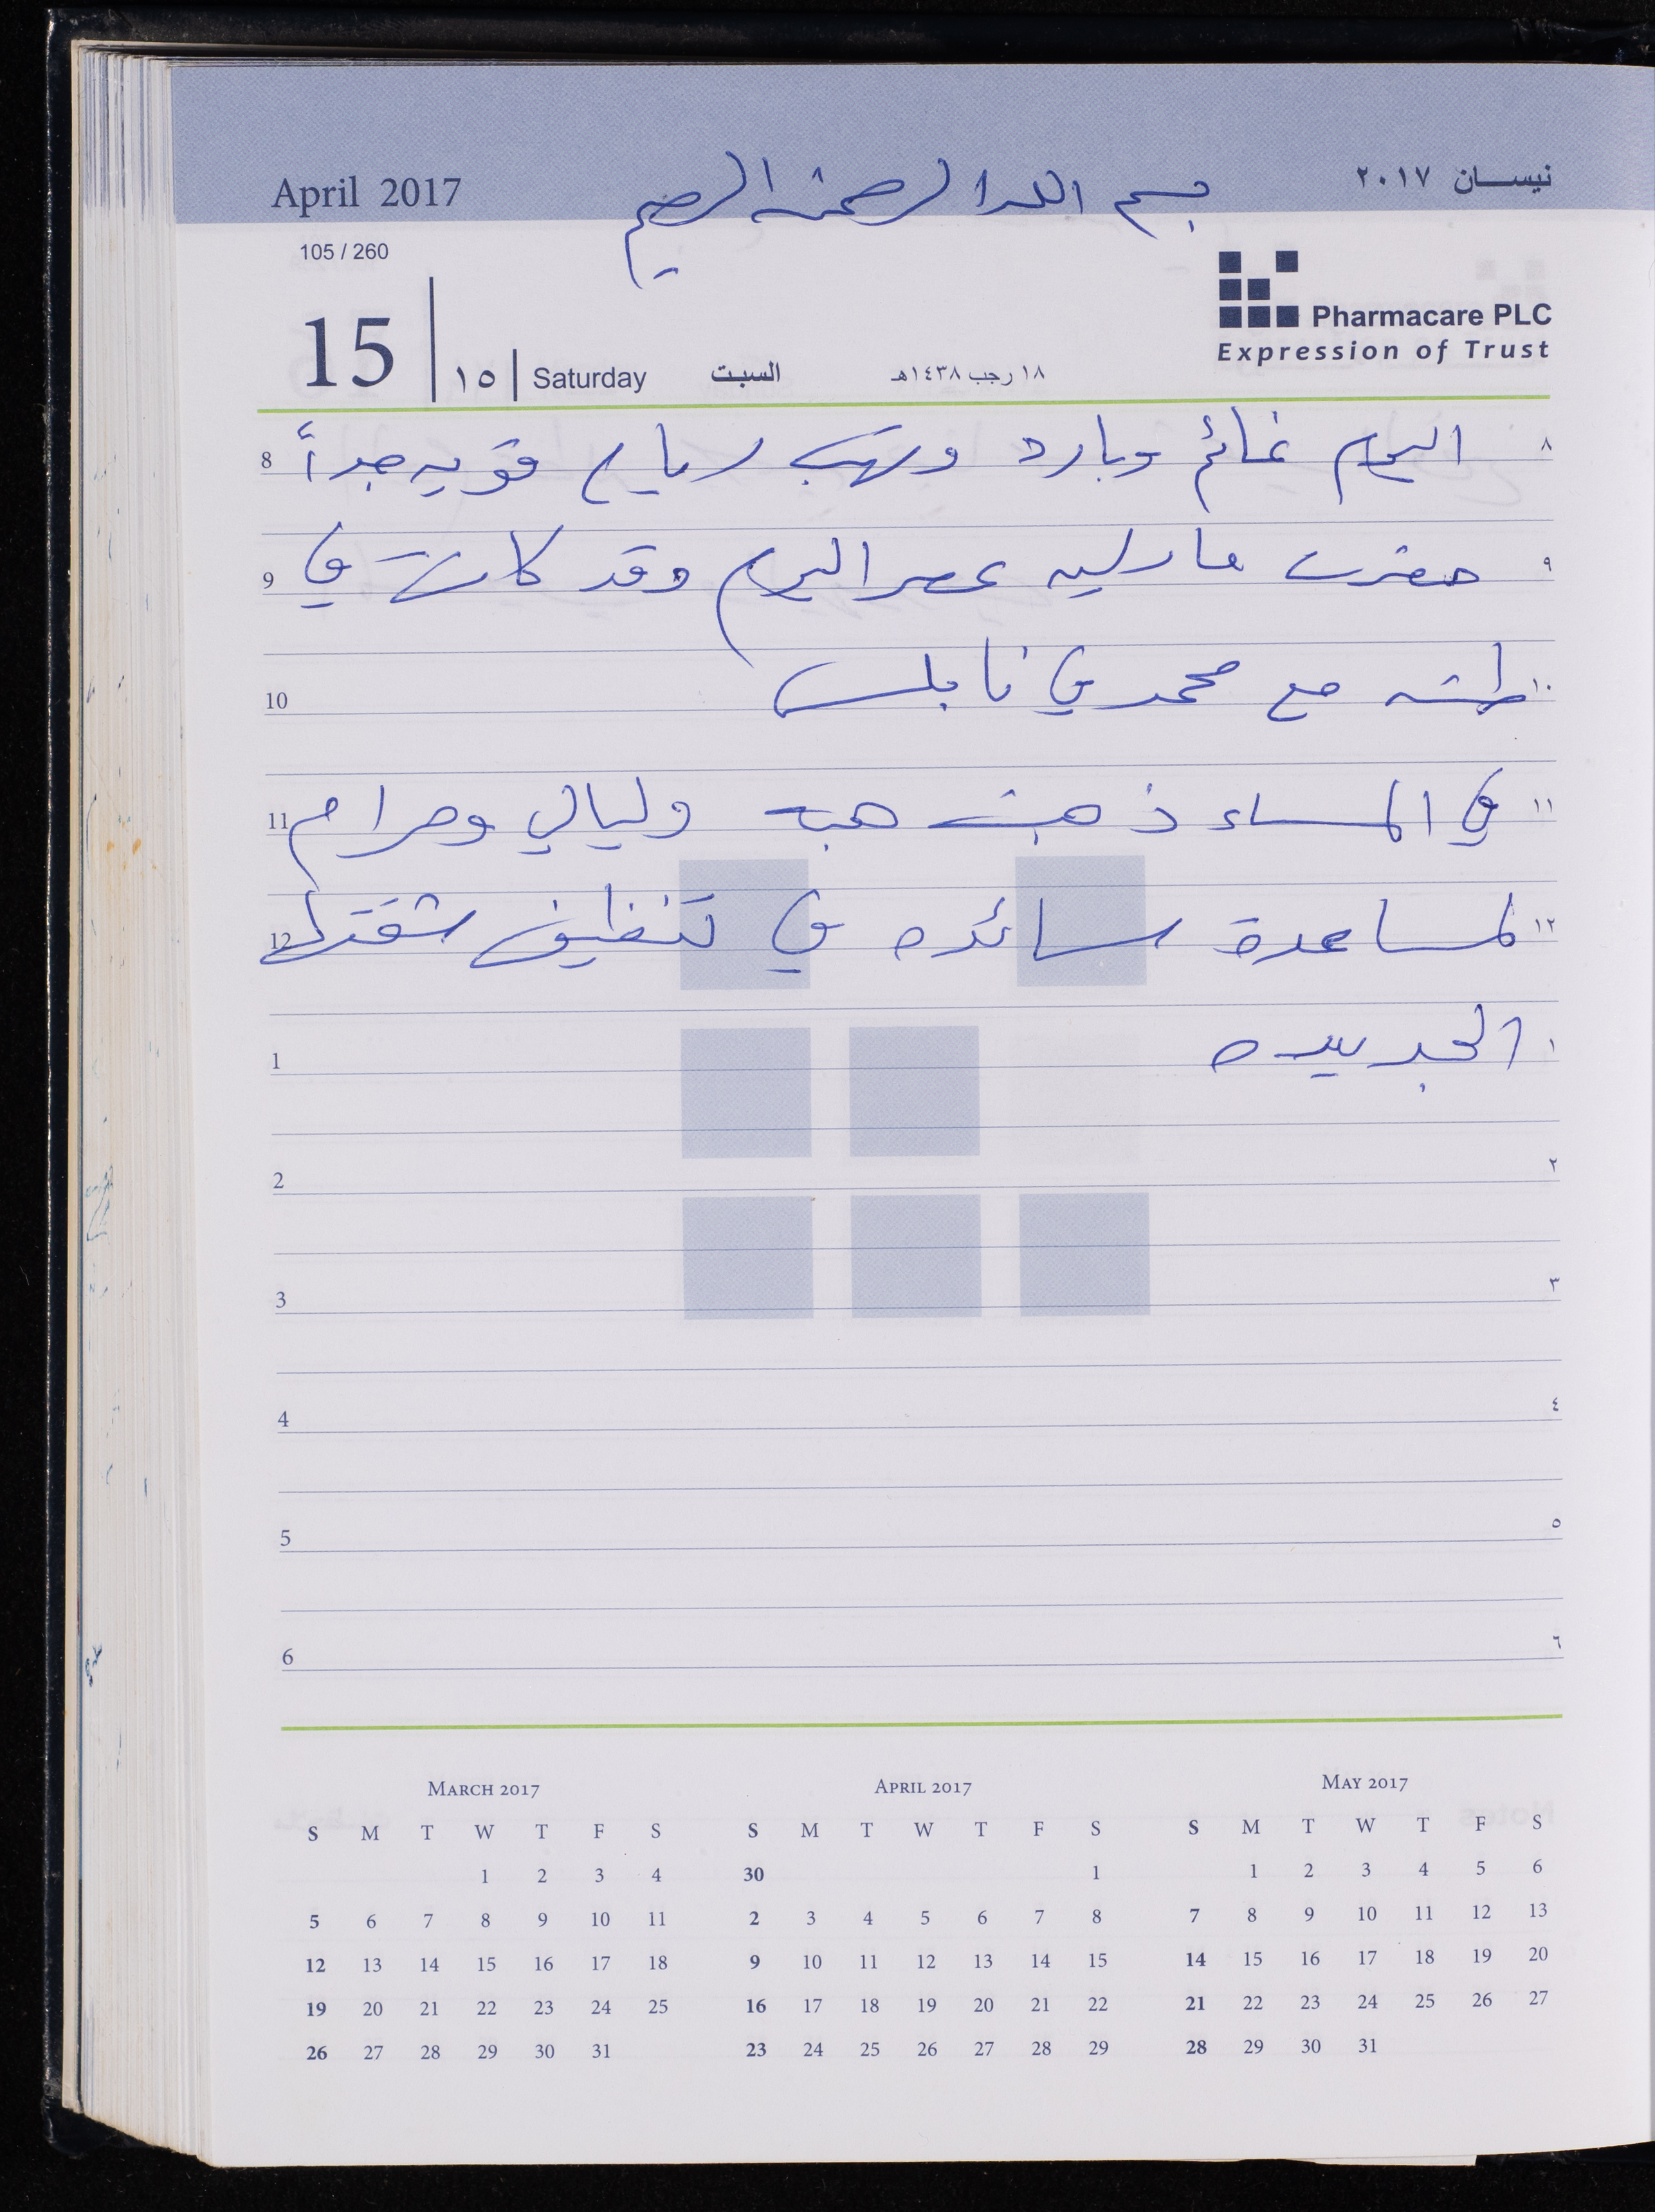 بسم الله الرحمن الرحيم
April 2017
نيسان ٢٠١٧
105 / 260
Pharmacare PLC
Expression of Trust
15 | ١٥ | Saturday السبت ١٨ رجب ١٤٣٨هـ
8 اليوم غائم وبارد وتهب رياح قويه جداً ٨
9 حضرت مادلين عصر اليوم وقد كانت في ٩
10 طشه مع محمد في نابلس ١٠
11 في المساء ذهبت هبه وليالي ومرام ١١
12 لمساعدة سائده في تنظيف شقتها ١٢
1 الجديده ١
2 ٢
3 ٣
4 ٤
5 ٥
6 ٦
MARCH 2017
S M T W T F S
1 2 3 4
5 6 7 8 9 10 11
12 13 14 15 16 17 18
19 20 21 22 23 24 25
26 27 28 29 30 31
APRIL 2017
S M T W T F S
30 1
2 3 4 5 6 7 8
9 10 11 12 13 14 15
16 17 18 19 20 21 22
23 24 25 26 27 28 29
MAY 2017
S M T W T F S
1 2 3 4 5 6
7 8 9 10 11 12 13
14 15 16 17 18 19 20
21 22 23 24 25 26 27
28 29 30 31